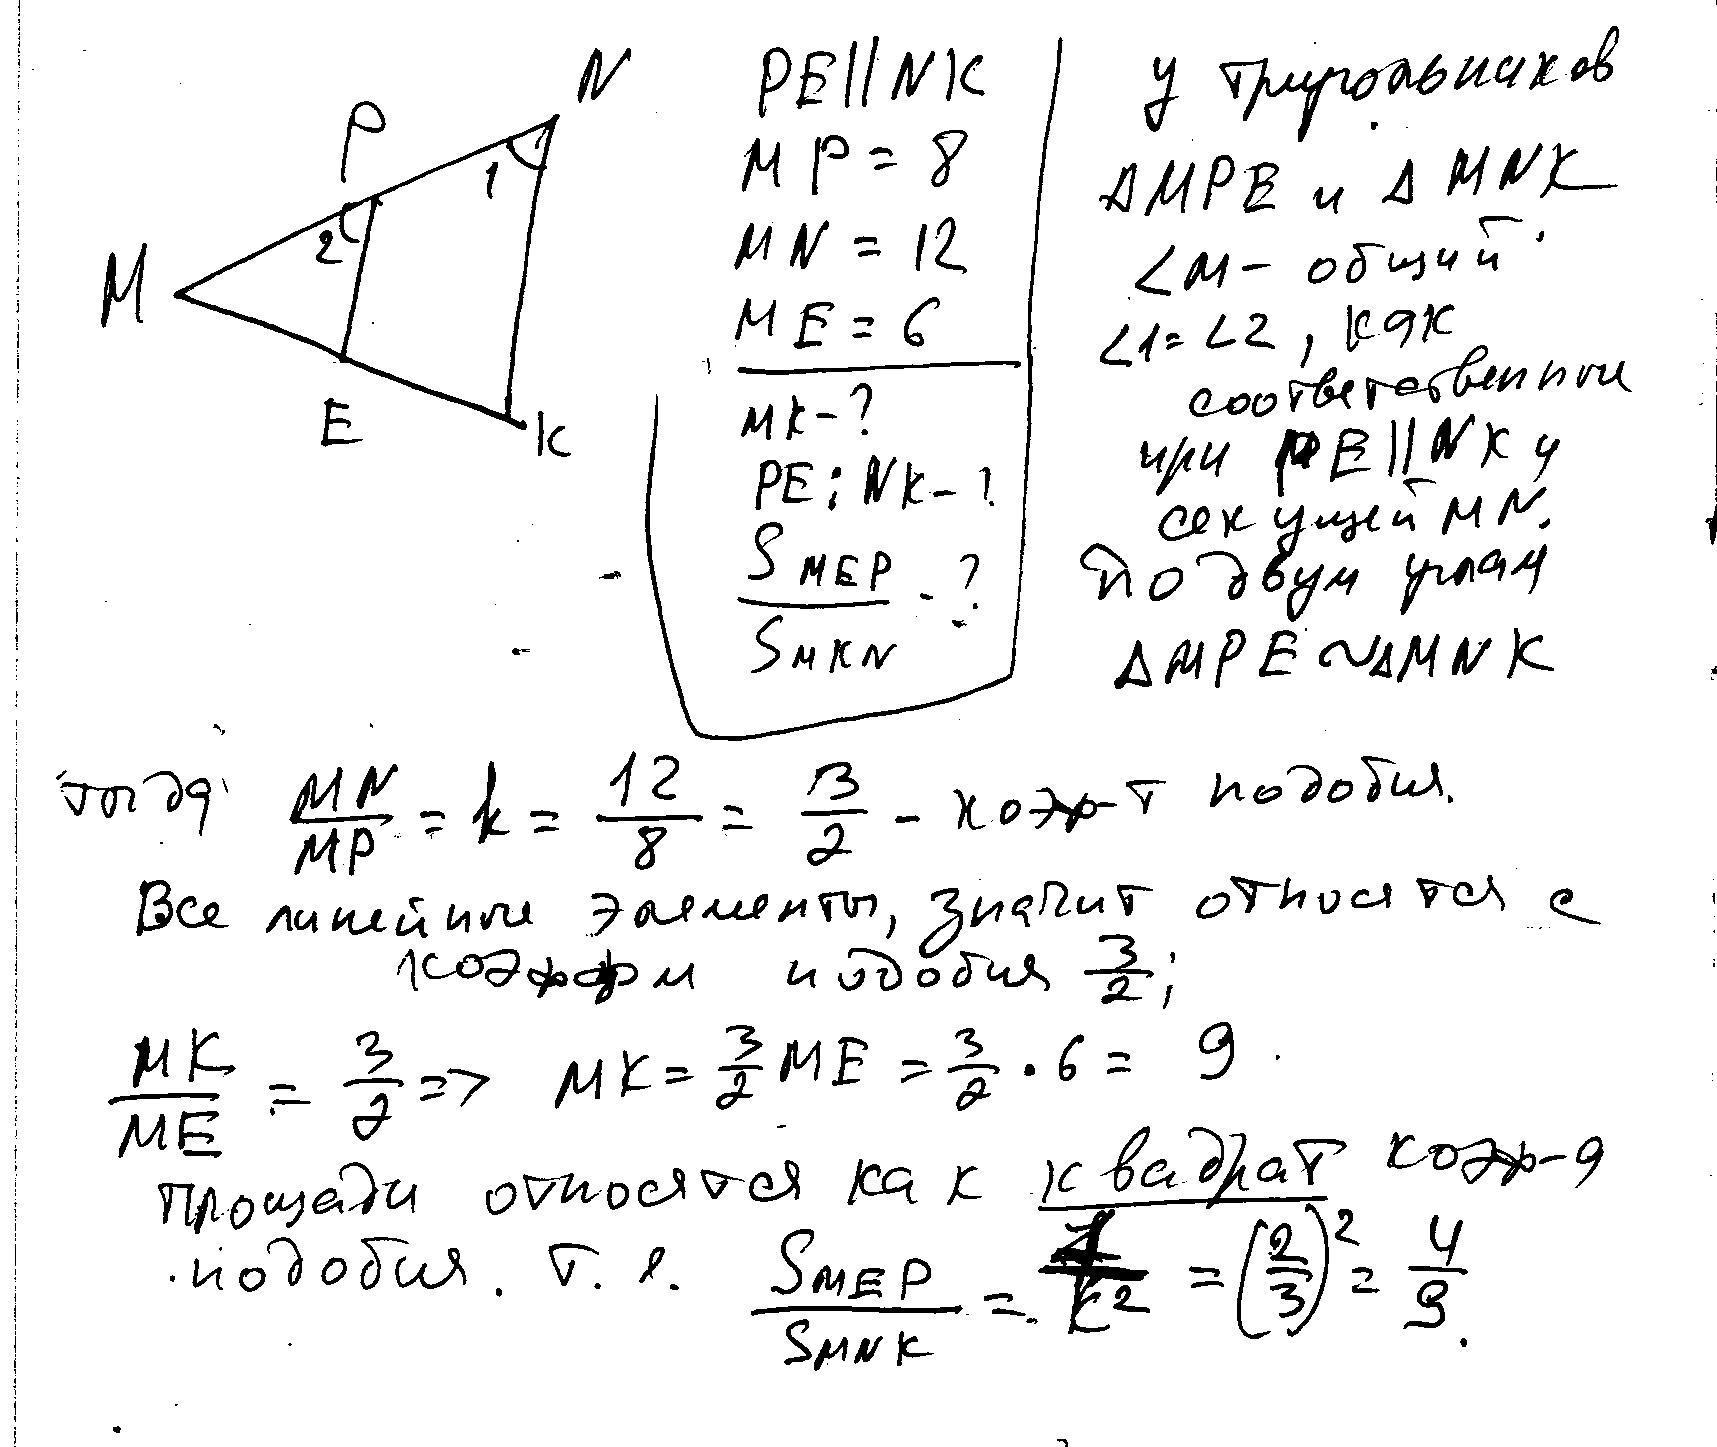 M
P
N
1
2
E
K
PE||NK
MP = 8
MN = 12
ME = 6
MK - ?
PE : NK - ?
S MEP / S MKN - ?
У треугольников
ΔMPE и ΔMNK
∠M - общий
∠1 = ∠2, как
соответственные
при PE||NK и
секущей MN.
По двум углам
ΔMPE ~ ΔMNK
тогда MN/MP = k = 12/8 = 3/2 - коэф-т подобия.
Все линейные элементы, значит относятся с
коэффом подобия 3/2;
MK/ME = 3/2 => MK = 3/2 ME = 3/2 · 6 = 9.
Площади относятся как квадрат коэф-а
подобия. т. е. S MEP / S MNK = 1/k² = (2/3)² = 4/9.